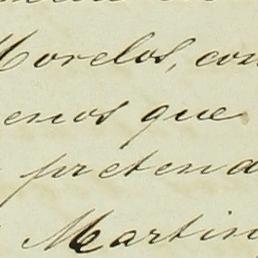 Morelos, con
enos que
pretend
Martin